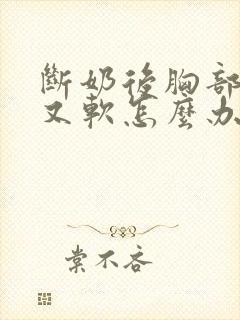 斷奶後胸部
又軟怎麼办
棠不吝